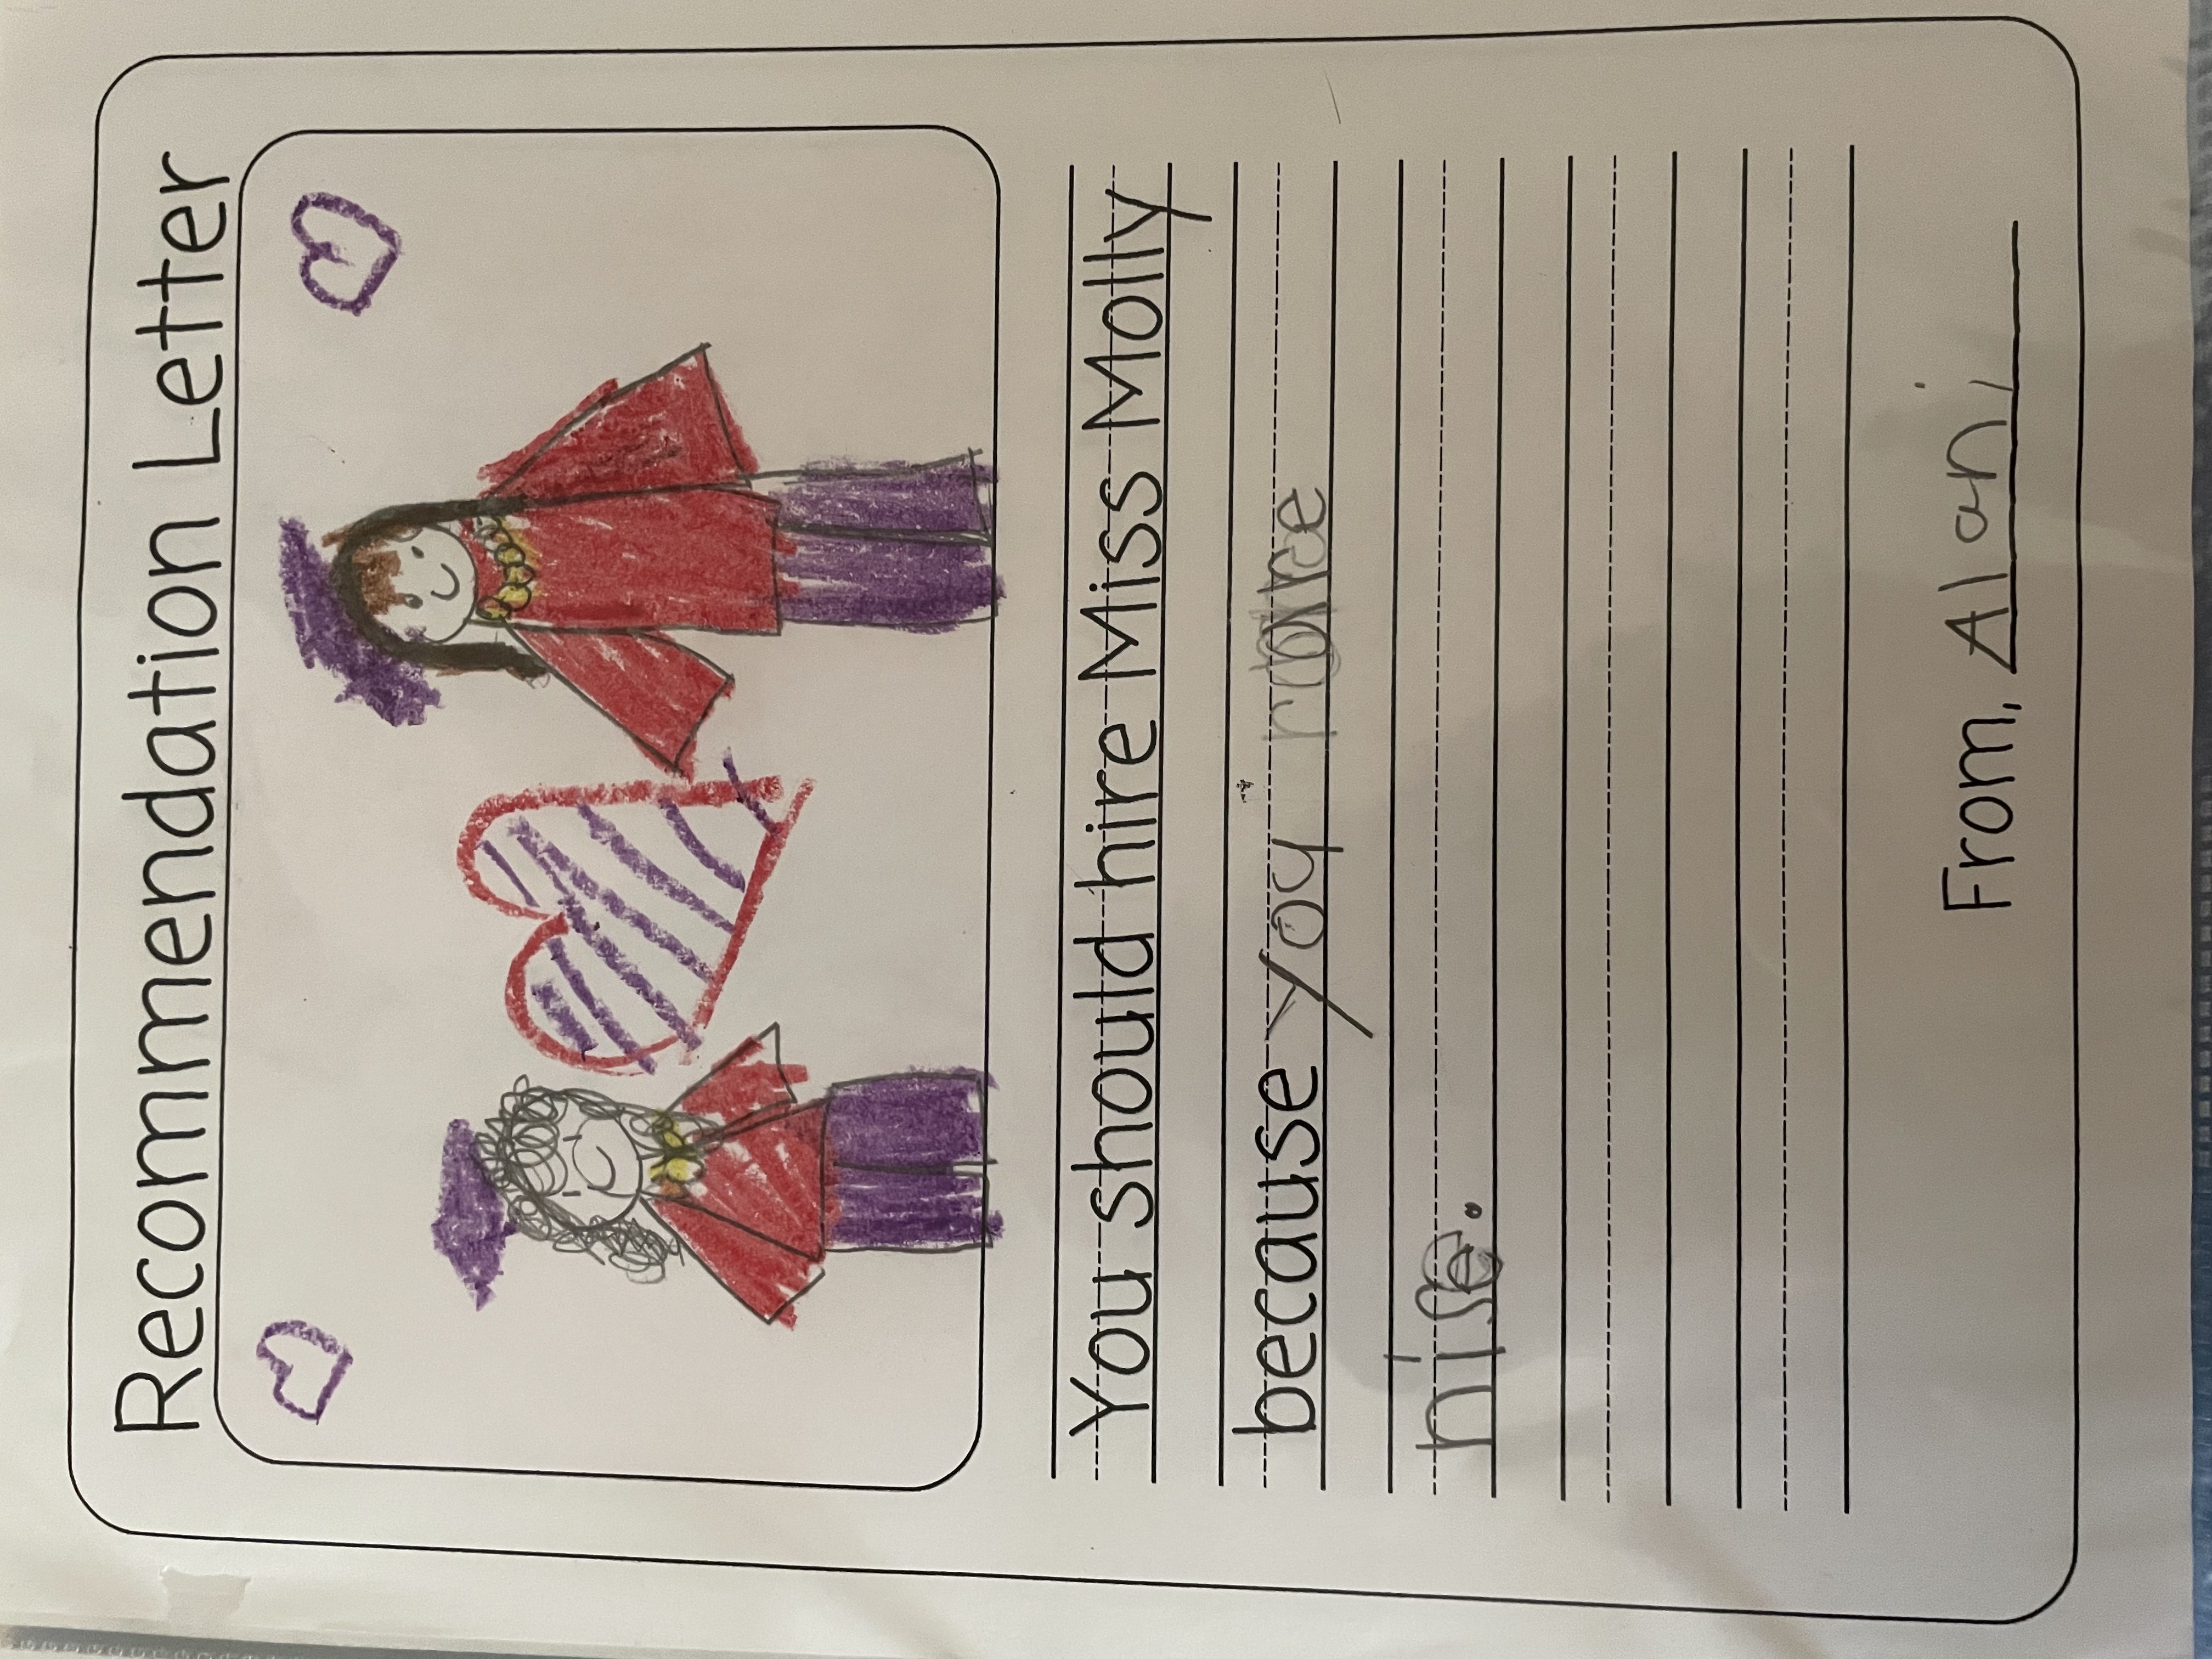 Recommendation Letter
You should hire Miss Molly
because you are
nise.
From, Alani